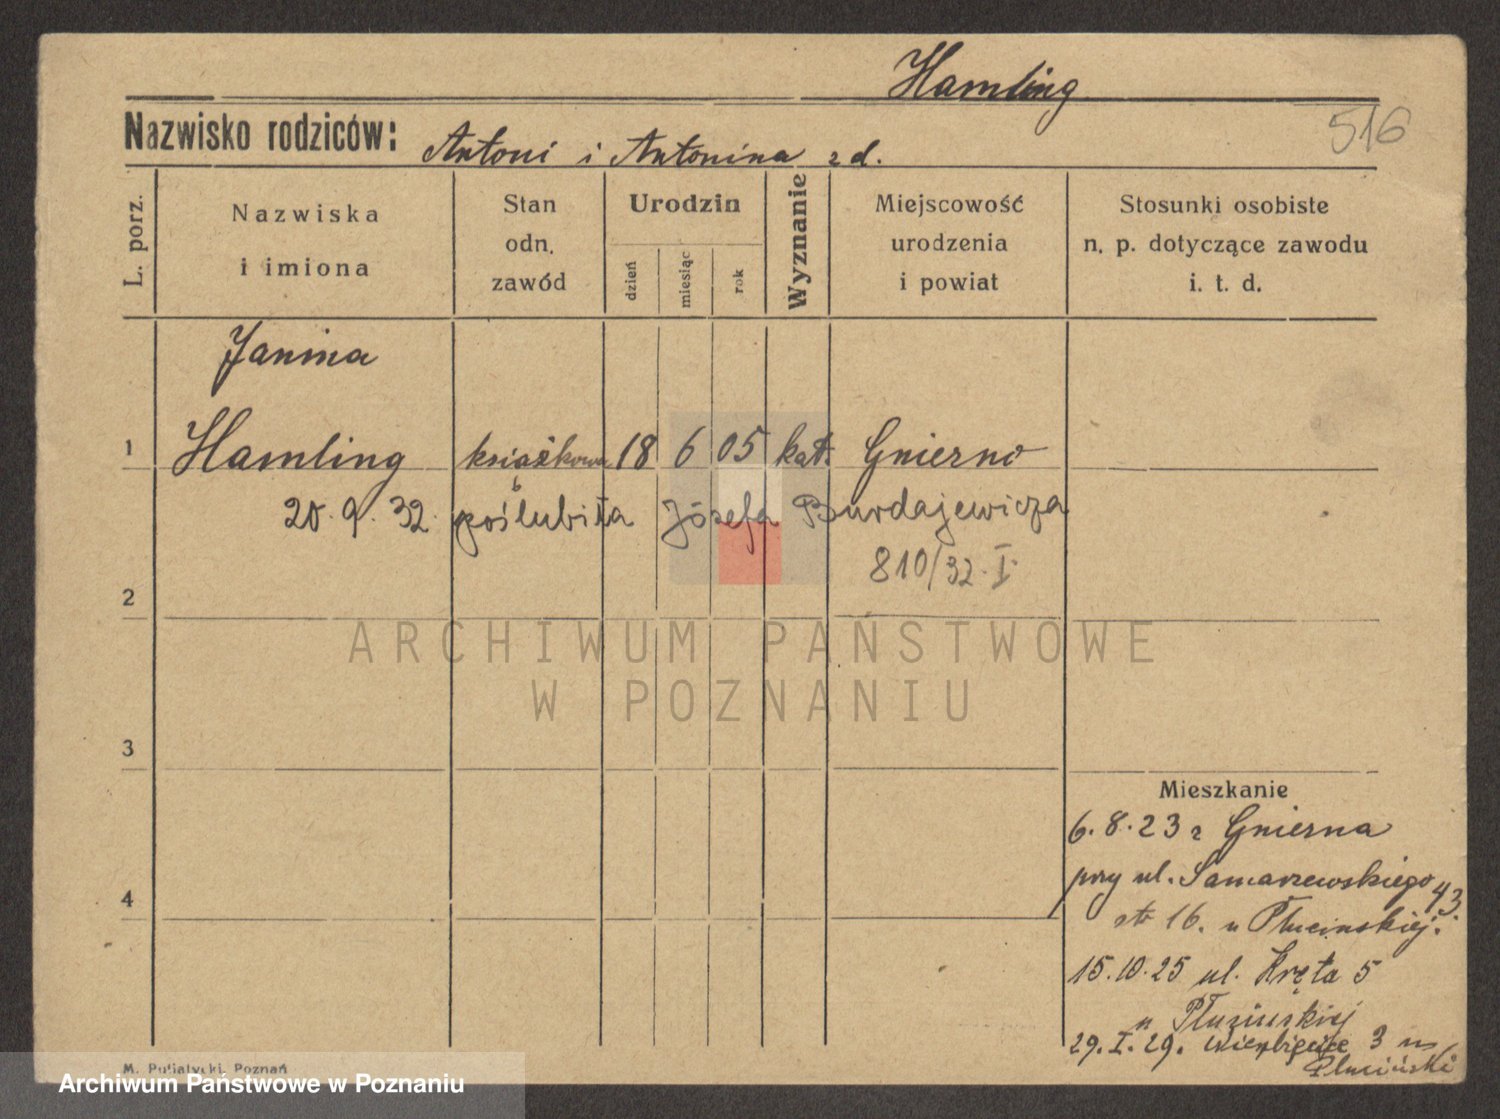 Hamling
516
Nazwisko rodziców: Antoni i Antonina z d.
L. porz.
Nazwiska
i imiona
Stan
odn.
zawód
Urodzin
dzień
miesiąc
rok
Wyznanie
Miejscowość
urodzenia
i powiat
Stosunki osobiste
n. p. dotyczące zawodu
i. t. d.
Janina
1 Hamling książkowa 18 6 05 kat. Gniezno
20. 9. 32. poślubiła Józefa Burdajewicza
810/32. I.
2
ARCHIWUM PAŃSTWOWE
W POZNANIU
3
Mieszkanie
6. 8. 23 z Gniezna
przy ul. Samarzewskiego
43.
4
16. u Plucinskiej.
15. 10. 25 ul. Kręta 5
u
29. I. 29. Wierzbięcice 3 u
Pluciński
M. Putiatycki, Poznań
Archiwum Państwowe w Poznaniu